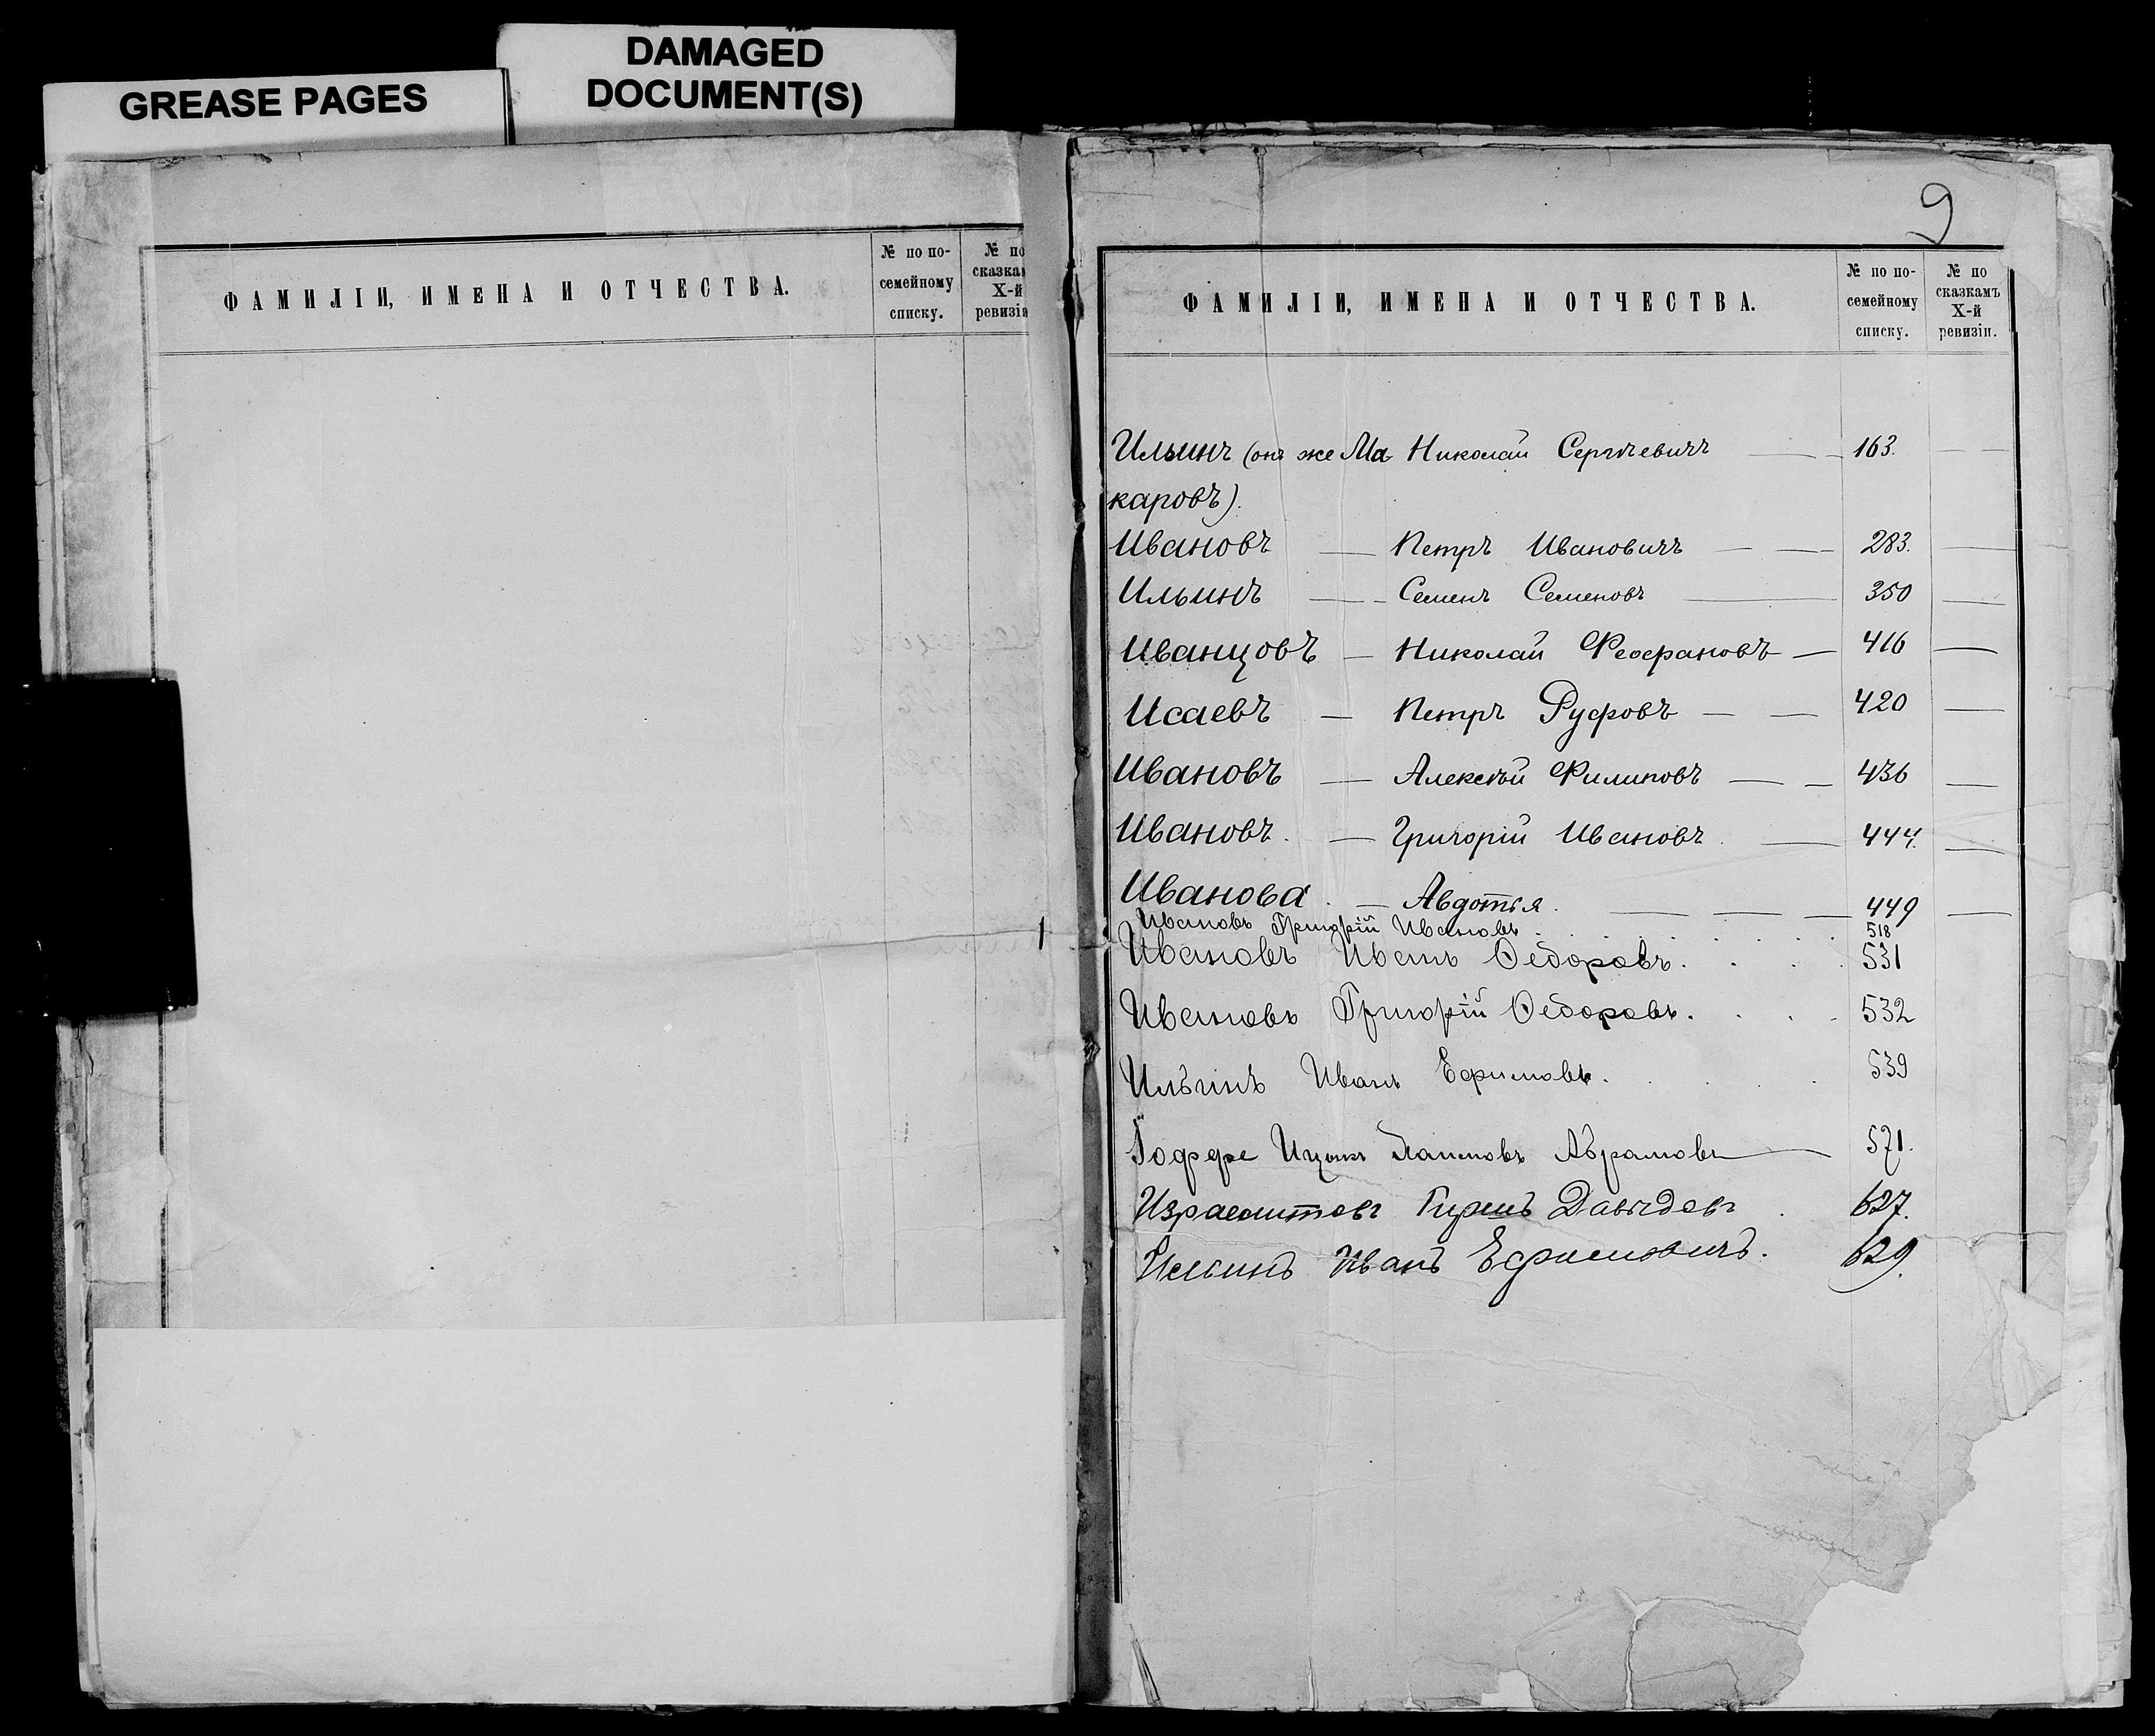 GREASE PAGES
DAMAGED
DOCUMENT(S)
ФАМИЛІИ, ИМЕНА И ОТЧЕСТВА.
№ по по-
семейному
списку.
№ по
сказкам
X-й
ревизіи
9
ФАМИЛІИ, ИМЕНА И ОТЧЕСТВА.
№ по по-
семейному
списку.
№ по
сказкамъ
X-й
ревизіи.
Ильинъ (онъ же Ма Николай Сергѣевичъ 163.
каровъ).
Ивановъ Петръ Ивановичъ 283.
Ильинъ Семенъ Семеновъ 350
Иванцовъ Николай Феофановъ 416
Исаевъ Петръ Руфовъ 420
Ивановъ Алексѣй Филиповъ 436
Ивановъ. Григорій Ивановъ. 444.
Иванова. Авдотья. 449
Ивановъ Григорій Ивановъ. 518
Ивановъ Иванъ Ѳедоровъ. 531
Ивановъ Григорій Ѳедоровъ. 532
Ильинъ Иванъ Ефимовъ. 539
Іоффе Ицыкъ Хаимовъ Абрамовъ 571.
Израелитовъ Гиршъ Давыдовъ. 627.
Ильинъ Иванъ Ефимовичъ. 629.